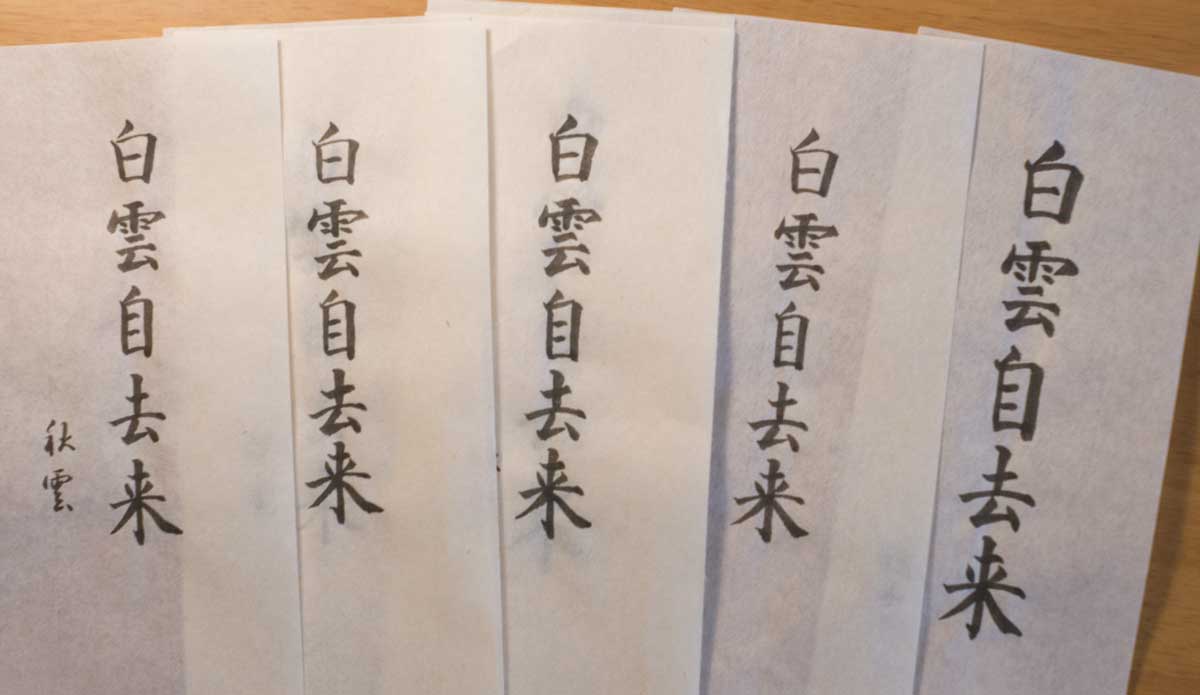 白雲自去来
白雲自去来
白雲自去来
白雲自去来
白雲自去来
秋雲